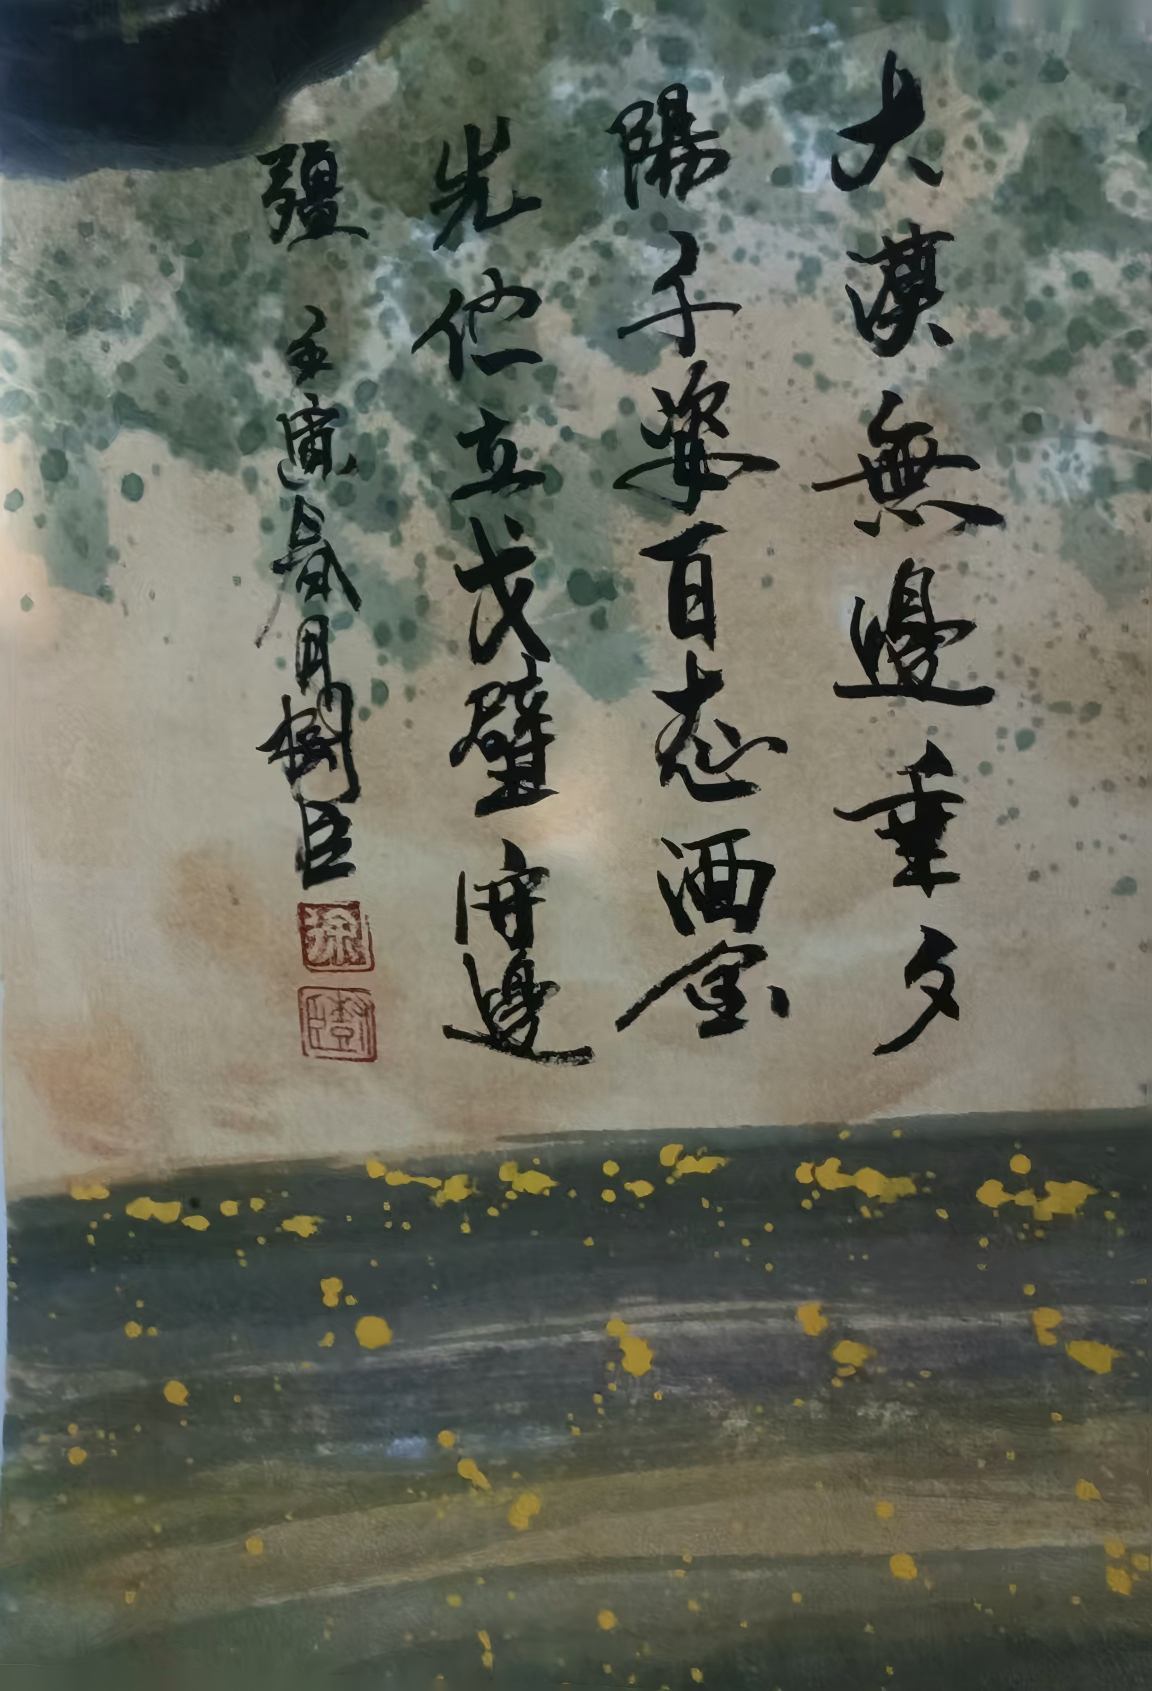 大漠無邊垂夕
陽千姿百态洒金
光伫立戈壁守邊
疆 壬寅春月臣
徐